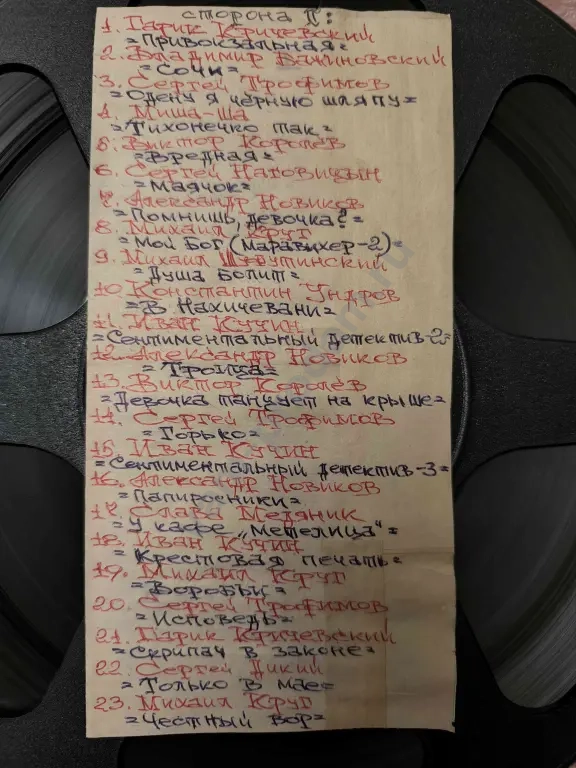 сторона II:
1. Гарик Кричевский
=Привокзальная=
2. Владимир Бажиновский
=Сочи=
3. Сергей Трофимов
=Одену я чёрную шляпу=
4. Миша-Ша
=Тихонечко так=
5. Виктор Королёв
=Вредная=
6. Сергей Наговицын
=Маячок=
7. Александр Новиков
=Помнишь, девочка?=
8. Михаил Круг
=Мой Бог, (Маравихер-2)=
9. Михаил Шуфутинский
=Душа болит=
10. Константин Ундров
=В Нахичевани=
11. Иван Кучин
=Сентиментальный детектив-2=
12. Александр Новиков
=Троица=
13. Виктор Королёв
=Девочка танцует на крыше=
14. Сергей Трофимов
=Горько=
15. Иван Кучин
=Сентиментальный детектив-3=
16. Александр Новиков
=Папиросники=
17. Слава Медяник
=У кафе „Метелица"=
18. Иван Кучин
=Крестовая печать=
19. Михаил Круг
=Воробьи=
20. Сергей Трофимов
=Исповедь=
21. Гарик Кричевский
=Скрипач в законе=
22. Сергей Дикий
=Только в мае=
23. Михаил Круг
=Честный вор=